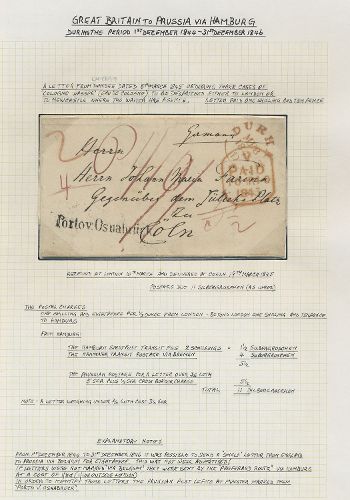 GREAT BRITAIN to PRUSSIA VIA HAMBURG
DURING THE PERIOD 1ST DECEMBER 1844 - 31ST DECEMBER 1846
A LETTER FROM DATED 8TH MARCH 1845 ORDERING THREE CASES OF
TO BE DESPATCHED EITHER TO LONDON OR
TO NEWCASTLE WHERE THE WRITER HAS AGENTS. LETTER PAID ONE SHILLING AND TEN PENCE
Germany
DURH
PAID
Herrn
Herrn Johann Maria Farina
Gegenüber dem Jülichs Platz
Zu
Cöln
Porto v. Osnabrück
LONDON 10TH MARCH AND DELIVERED AT COELN 14TH MARCH 1845
POSTAGE DUE 11 SILBERGROSCHEN
THE POSTAL CHARGES
ONE SHILLING AND PER 1/2 OUNCE FROM LONDON - BEYOND LONDON ONE SHILLING AND TENPENCE
TO HAMBURG
FROM HAMBURG
THE HAMBURG TRANSIT FEE 2 SCHILLINGS = 1 1/2 SILBERGROSCHEN
THE HANOVER TRANSIT POSTAGE VIA BREMEN 4 SILBERGROSCHEN
5 1/2
THE PRUSSIAN POSTAGE FOR A LETTER OVER 3/4 LOTH
5 1/2
TOTAL 11 SILBERGROSCHEN
NOTE: A LETTER WEIGHING UNDER 3/4 LOTH COST
EXPLANATORY NOTES
FROM 1ST DECEMBER 1844 TO 31ST DECEMBER 1846 IT WAS POSSIBLE TO SEND A SINGLE LETTER FROM ENGLAND
TO PRUSSIA VIA BELGIUM FOR THIS WAS NOT WELL ADVERTISED
IF LETTERS WERE NOT MARKED 'VIA BELGIUM' THEY WERE SENT BY THE PREFERRED ROUTE VIA HAMBURG
AT A COST OF
IN ORDER TO IDENTIFY THOSE LETTERS THE PRUSSIAN POST OFFICE AT MINDEN MARKED THEM
'PORTO V. OSNABRUCK'